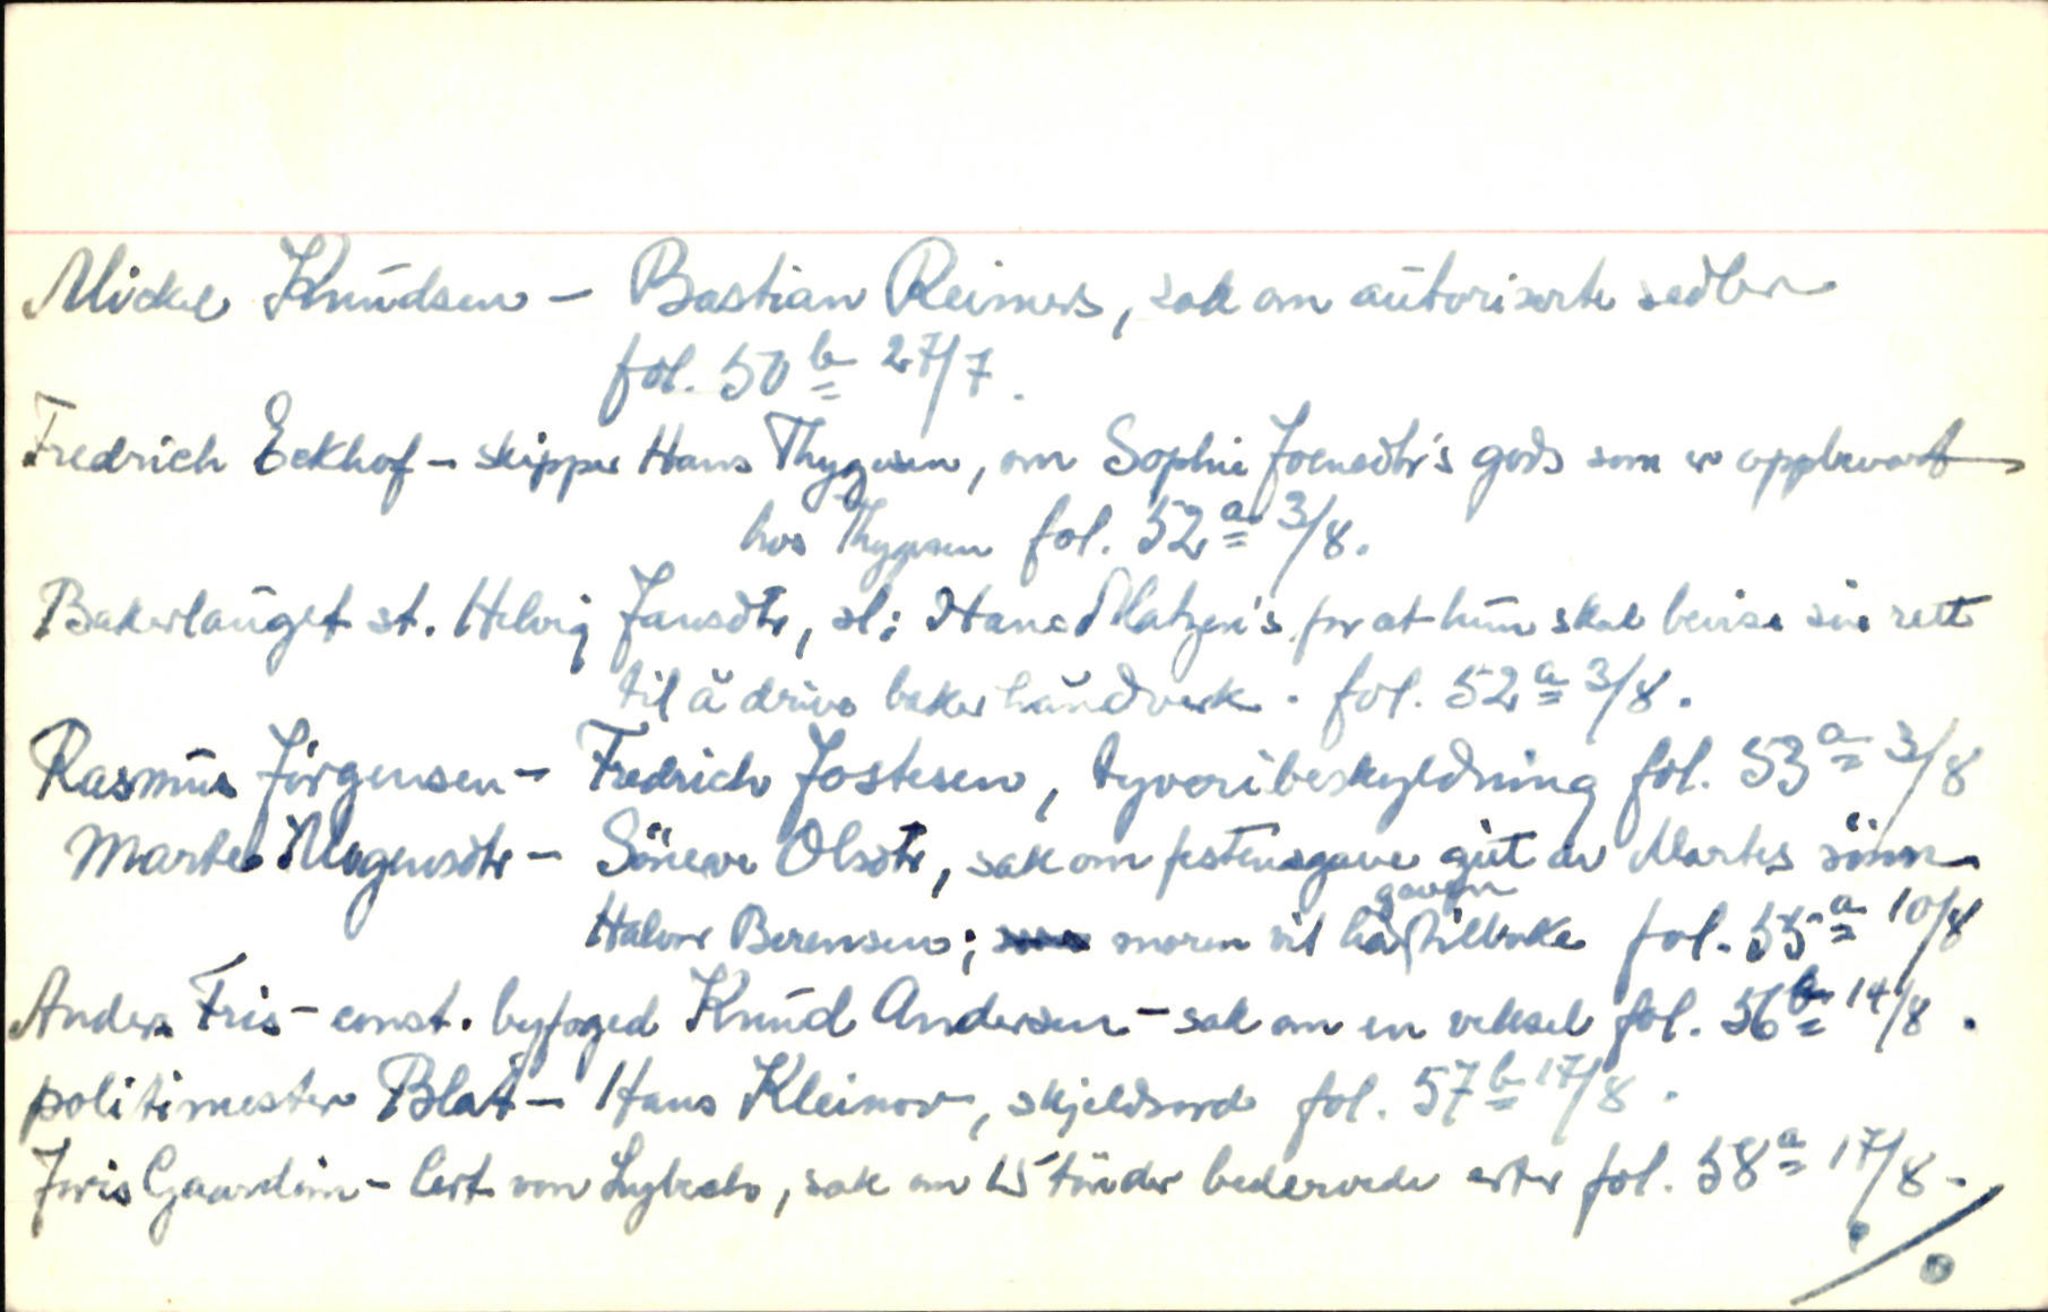 Mickel Knudsen - Bastian Reimers, sak om autoriserte sedler
fol. 50 b 27/7.
Fredrich Eckhof - skipper Hans Thygesen, om Sophie Joensdtr's gods som er oppbevart
hos Thygesen fol. 52 a 3/8.
Bakerlauget st. Helvig Jansdtr, sl: Hans Matzen's for at hun skal bevise sin rett
til å drive bakerhåndverk. fol. 52 a 3/8.
Rasmus Jörgensen - Fredrich Jostesen, tyveribeskyldning fol. 53 a 3/8
Marte Mogensdtr - Söneve Olsdtr, sak om festensgave git av Martes sönn
Halvor Berensen; moren vil ha gaven tilbake fol. 55 a 10/8
Anders Fris - const. byfoged Knud Andersen - sak om en veksel fol. 56 b 14/8.
politimester Blat - Hans Kleinov, skjeldsord fol. 57 b 17/8.
Joris Gaardin - Cert von Lybech, sak om 15 tönder bedervede erter fol. 58 a 17/8.